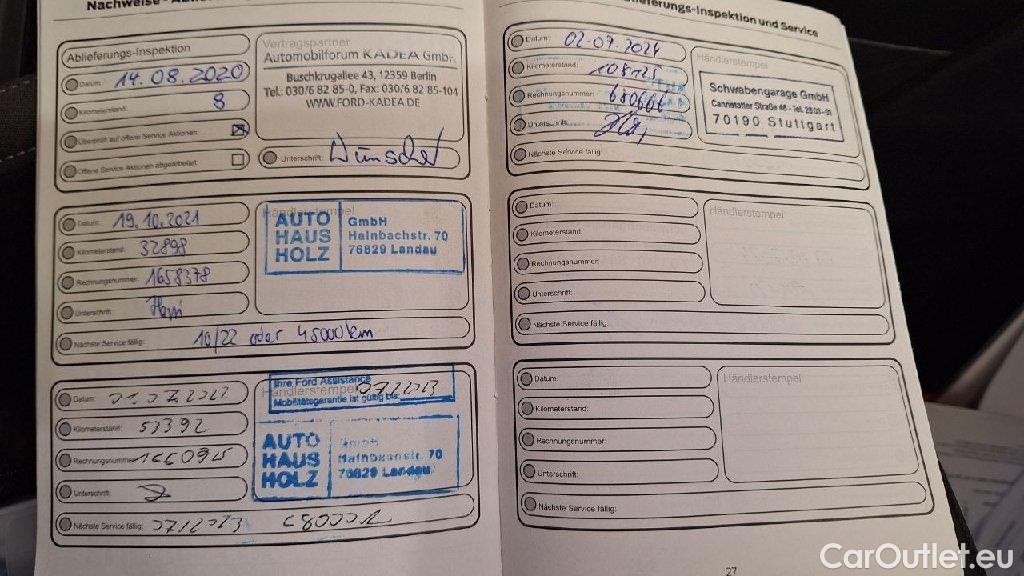 Ablieferungs-Inspektion
Datum: 14.08.2020
Kilometerstand: 8
Überprüft auf offene Service Aktionen:
Offene Service Aktionen abgearbeitet:
Vertragspartner
Automobilforum KADEA GmbH
Buschkrugallee 43, 12359 Berlin
Tel.: 030/6 82 85-0, Fax: 030/6 82 85-104
WWW.FORD-KADEA.DE
Unterschrift:
Datum: 19.10.2021
Kilometerstand: 32898
Rechnungsnummer: 1658378
Unterschrift:
Händlerstempel
AUTO HAUS HOLZ
GmbH
Hainbachstr. 70
76829 Landau
Nächste Service fällig: 10/22 oder 45000km
Datum:
Kilometerstand: 53392
Rechnungsnummer:
Unterschrift:
Händlerstempel
Ihre Ford Assistance
Mobilitätsgarantie ist gültig bis: 07/2023
AUTO HAUS HOLZ
GmbH
Hainbachstr. 70
76829 Landau
Nächste Service fällig: 07/2023
Ablieferungs-Inspektion und Service
Datum: 02-07-2024
Kilometerstand: 108125
Rechnungsnummer:
Unterschrift:
Nächste Service fällig:
Händlerstempel
Schwabengarage GmbH
70190 Stuttgart
Datum:
Kilometerstand:
Rechnungsnummer:
Unterschrift:
Nächste Service fällig:
Händlerstempel
Datum:
Kilometerstand:
Rechnungsnummer:
Unterschrift:
Nächste Service fällig:
Händlerstempel
27
CarOutlet.eu